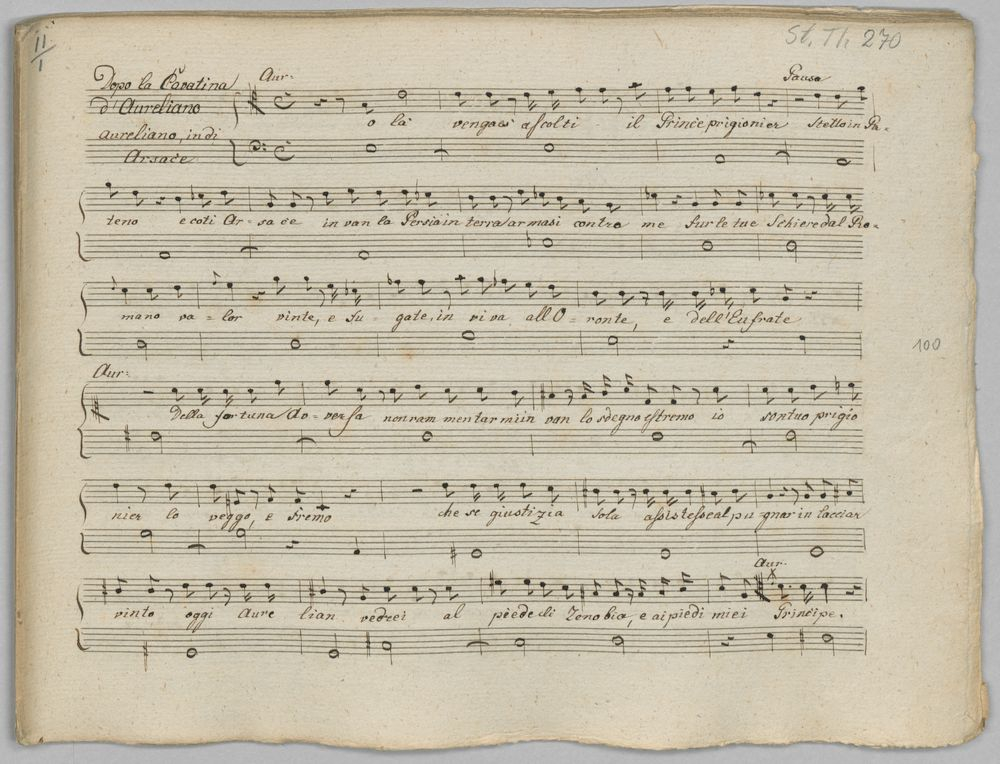 II
1
St. Th 270
Dopo la Cavatina
d'Aureliano
Aureliano, indi
Arsace
Aur:
Pausa
o là vengasi ascolti il Prence prigionier stettoin Pa=
teno e coti Ar=sace in van la Persia in terra armasi contro me Fur le tue Schiere dal Ro=
mano va=lor vinte, e fu=gate, in viva all'O=ronte, e dell'Eufrate
100
Aur:
Della fortuna Av=versa non rammentarmi in van lo sdegno estremo io son tuo prigio
nier lo veggo, e fremo che se giustizia sola assistesse al pugnar in lacci ar
vinto oggi Aurelian vedrei al piede di Zenobia, e ai piedi miei Principe.
Aur.